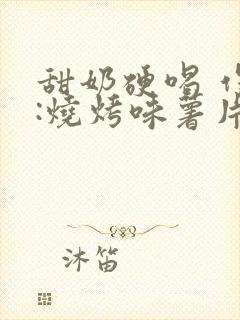 甜奶硬唱
:燒烤味薯片
沐笛